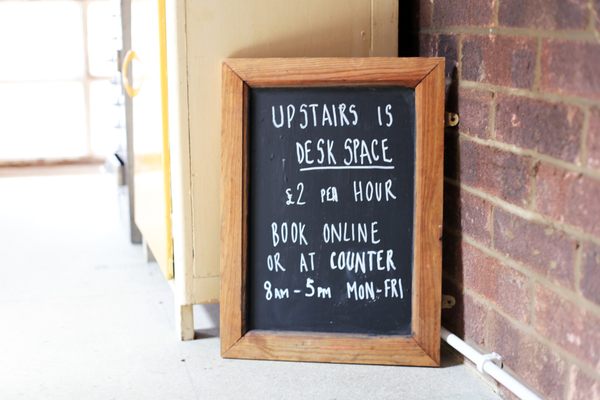 UPSTAIRS IS
DESK SPACE
£2 PER HOUR
BOOK ONLINE
OR AT COUNTER
8am - 5pm MON-FRI